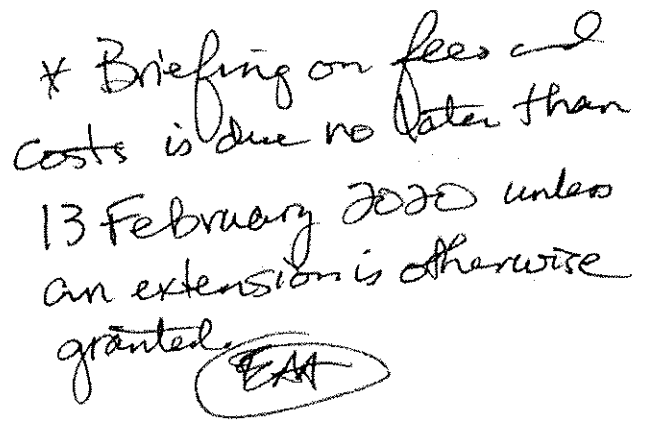 * Briefing on fees and
costs is due no later than
13 February 2020 unless
an extension is otherwise
granted.
EAA